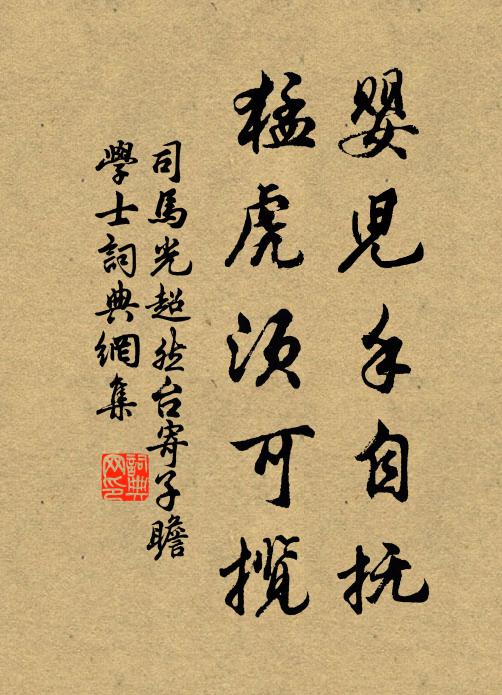 婴児手自抚
猛虎须可揽
司馬光超然台寄子瞻
學士詞典網集
詞典
网印